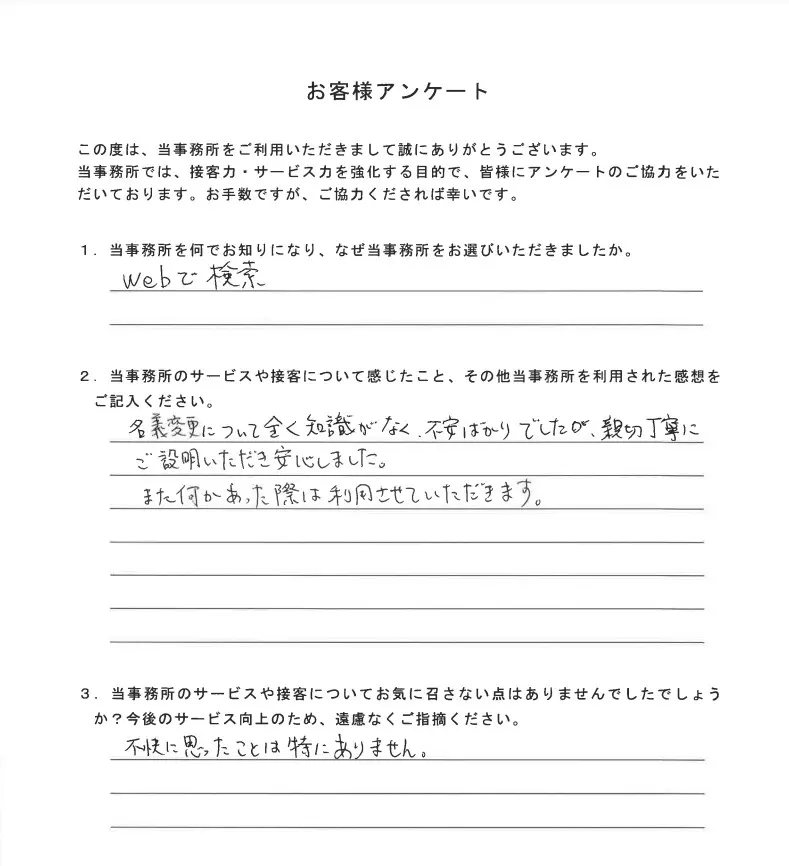 お客様アンケート
この度は、当事務所をご利用いただきまして誠にありがとうございます。
当事務所では、接客力・サービス力を強化する目的で、皆様にアンケートのご協力をいた
だいております。お手数ですが、ご協力くだされば幸いです。
１．当事務所を何でお知りになり、なぜ当事務所をお選びいただきましたか。
webで検索
２．当事務所のサービスや接客について感じたこと、その他当事務所を利用された感想を
ご記入ください。
名義変更について全く知識がなく、不安ばかりでしたが、親切丁寧に
ご説明いただき安心しました。
また何かあった際は利用させていただきます。
３．当事務所のサービスや接客についてお気に召さない点はありませんでしたでしょう
か？今後のサービス向上のため、遠慮なくご指摘ください。
不快に思ったことは特にありません。